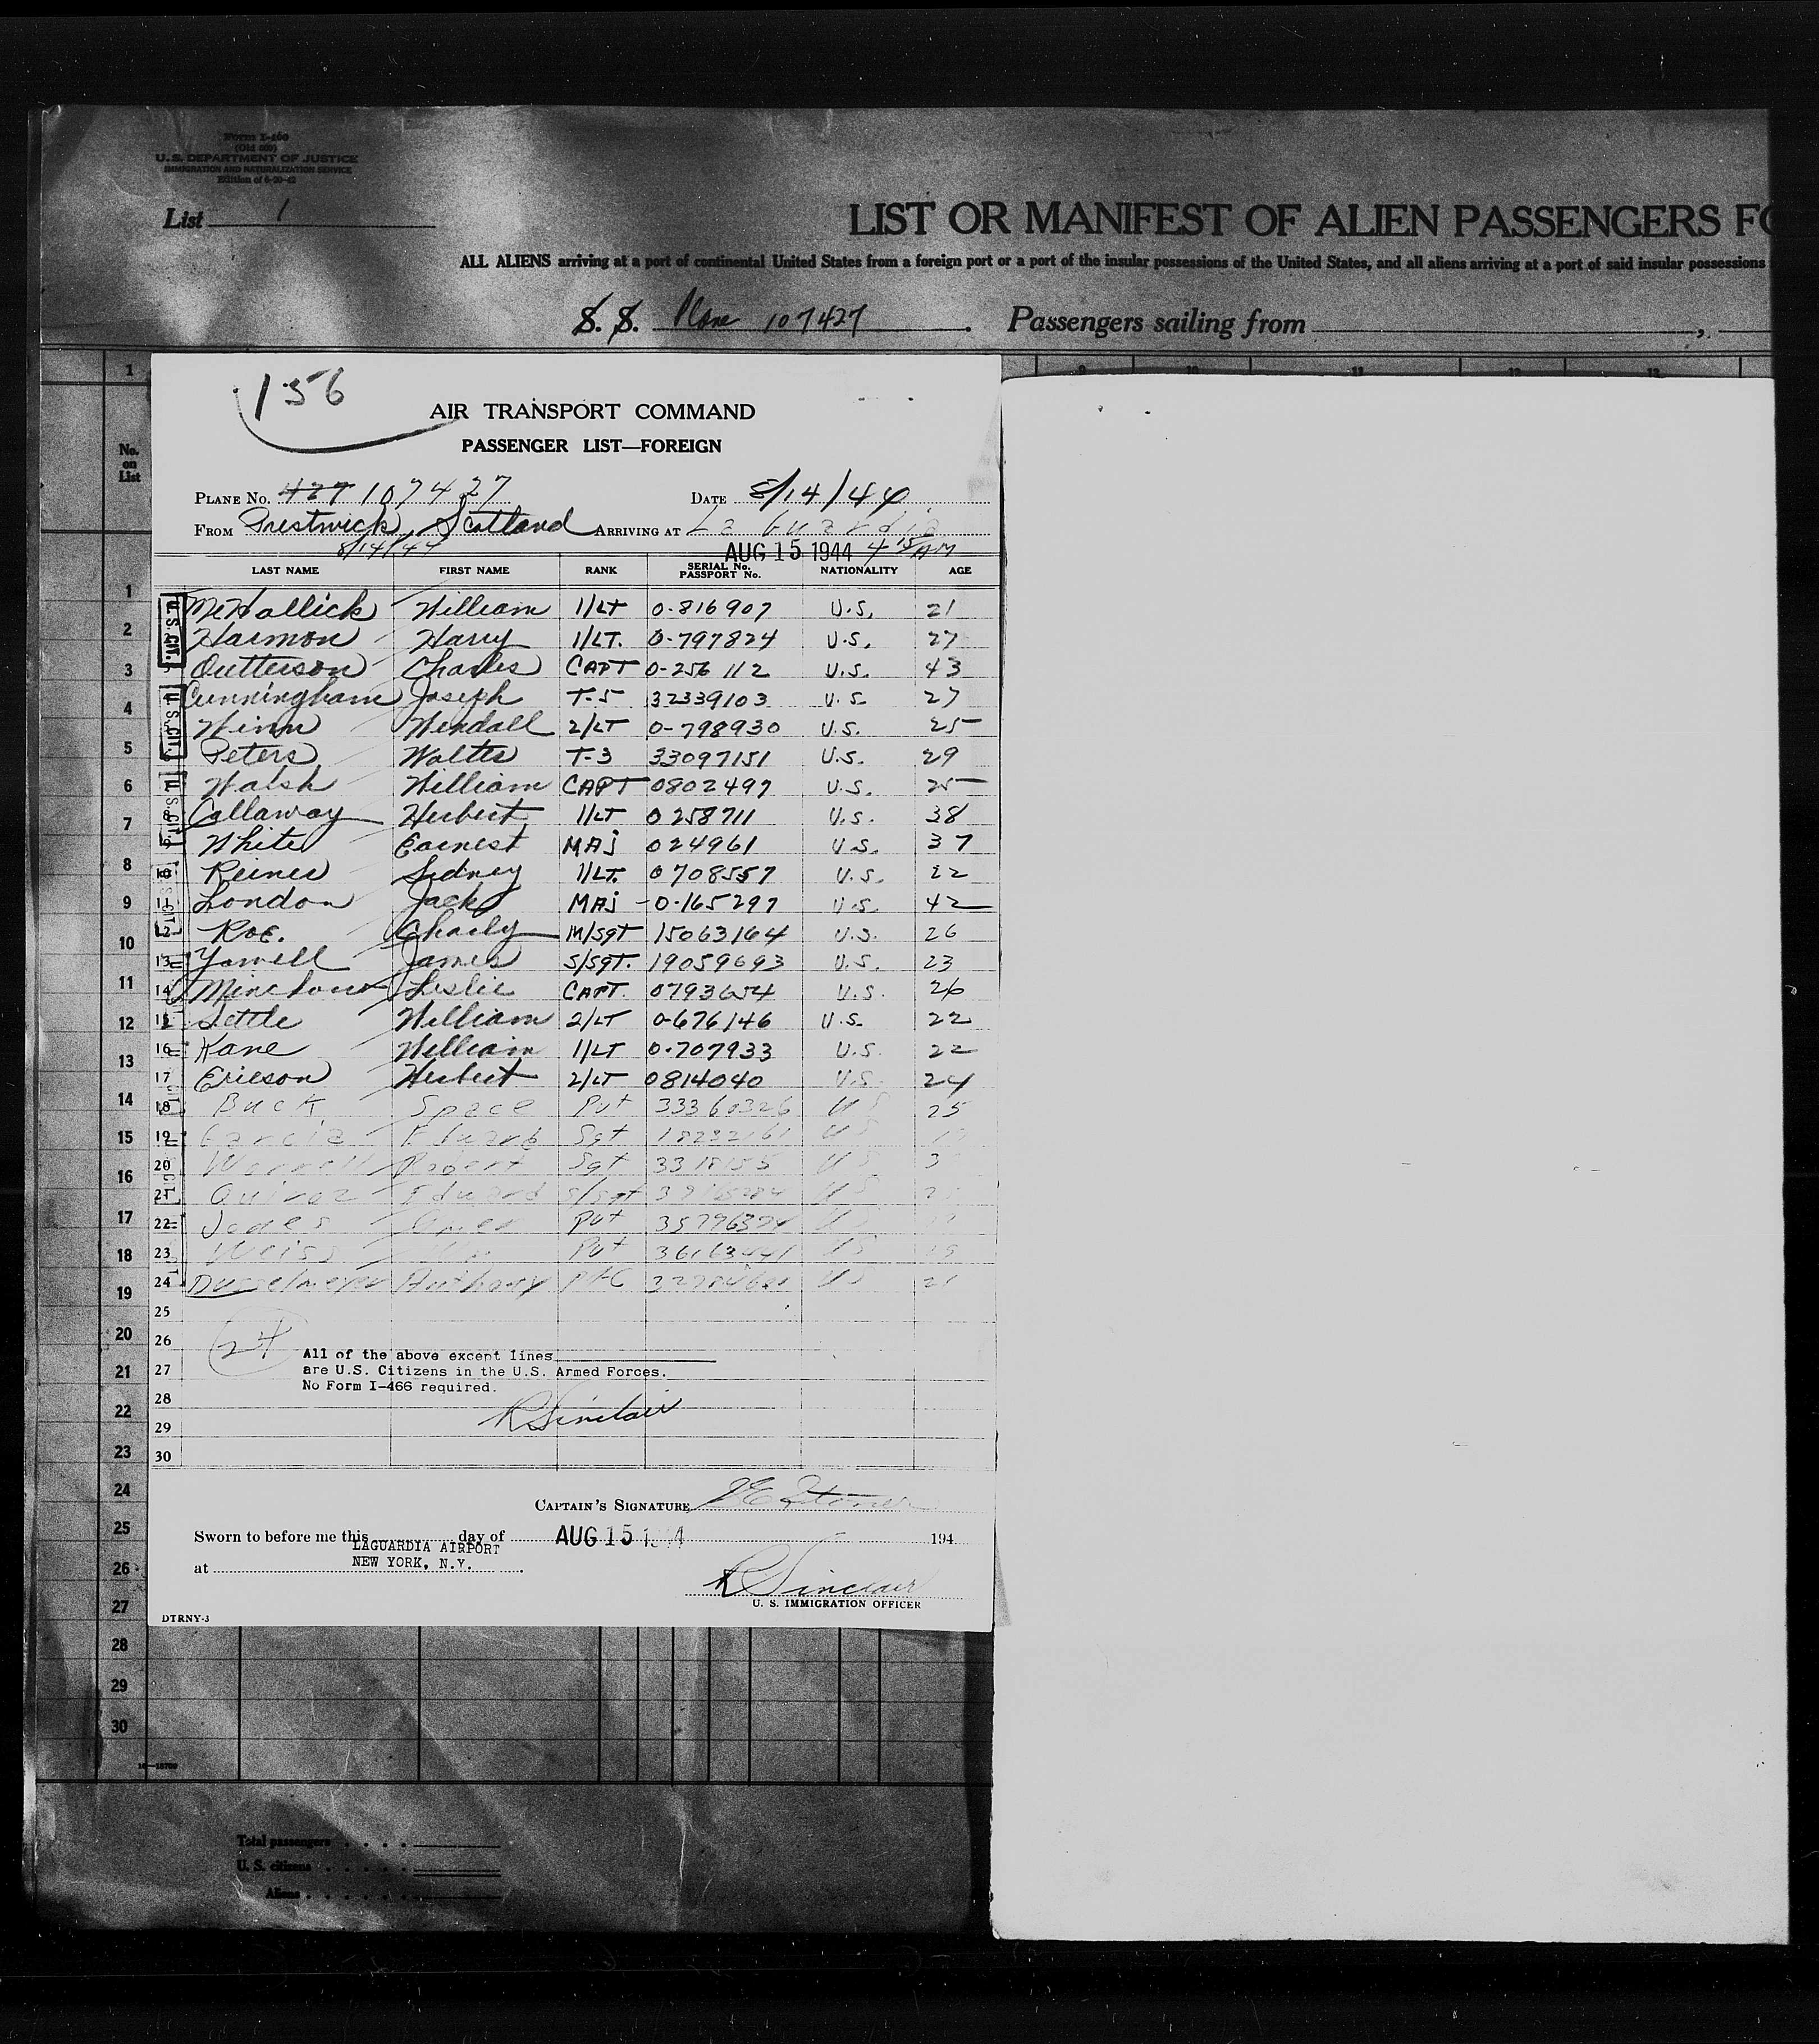 Form I-466
(Old 500)
U. S. DEPARTMENT OF JUSTICE
IMMIGRATION AND NATURALIZATION SERVICE
Edition of 6-20-42
List 1
LIST OR MANIFEST OF ALIEN PASSENGERS FO
ALL ALIENS arriving at a port of continental United States from a foreign port or a port of the insular possessions of the United States, and all aliens arriving at a port of said insular possessions
S. S. Plane 107427 . Passengers sailing from ,
156
AIR TRANSPORT COMMAND
PASSENGER LIST—FOREIGN
PLANE NO. 427 107427 DATE 8/14/44
FROM Prestwick, Scotland ARRIVING AT La Guardia
8/14/44 AUG 15 1944 4 15 AM
No. on List
LAST NAME FIRST NAME RANK SERIAL No. PASSPORT No. NATIONALITY AGE
William 1/LT 0-816907 U.S. 21
Harmon Harry 1/LT. 0-797824 U.S. 27
Outterson Charles CAPT 0-256112 U.S. 43
Cunningham Joseph T-5 32339103 U.S. 27
Winn Wendall 2/LT 0-798930 U.S. 25
Peters Walter T-3 33097151 U.S. 29
Walsh William CAPT 0802497 U.S. 25
Callaway Herbert 1/LT 0258711 U.S. 38
White Earnest MAJ 024961 U.S. 37
10 Reiner Sidney 1/LT. 0708557 U.S. 22
11 London Jack MAJ 0-165297 U.S. 42
12 Roe. Charly M/SGT 15063164 U.S. 26
13 Yowell James S/SGT. 19059693 U.S. 23
14 Leslie CAPT. 0793654 U.S. 26
15 Settle William 2/LT 0-676146 U.S. 22
16 Kane William 1/LT 0-707933 U.S. 22
17 Ericson Herbert 2/LT 0814040 U.S. 24
18 Buck Space Pvt 33360326 US 25
19 Garcia Edward Sgt 18232161 US
20 Robert Sgt US
21 Edward S/Sgt US
22 Jones Pvt 35796374 US
23 Weiss Pvt US
24 Dusselmeyer Anthony PFC US 21
25
26
27
28
29
30
24
All of the above except lines
are U.S. Citizens in the U.S. Armed Forces.
No Form I-466 required.
R Sinclair
CAPTAIN'S SIGNATURE
Sworn to before me this day of AUG 15 1944 194
LAGUARDIA AIRPORT
at NEW YORK, N.Y.
R Sinclair
U. S. IMMIGRATION OFFICER
DTRNY-3
Total passengers
U. S. citizens
Aliens